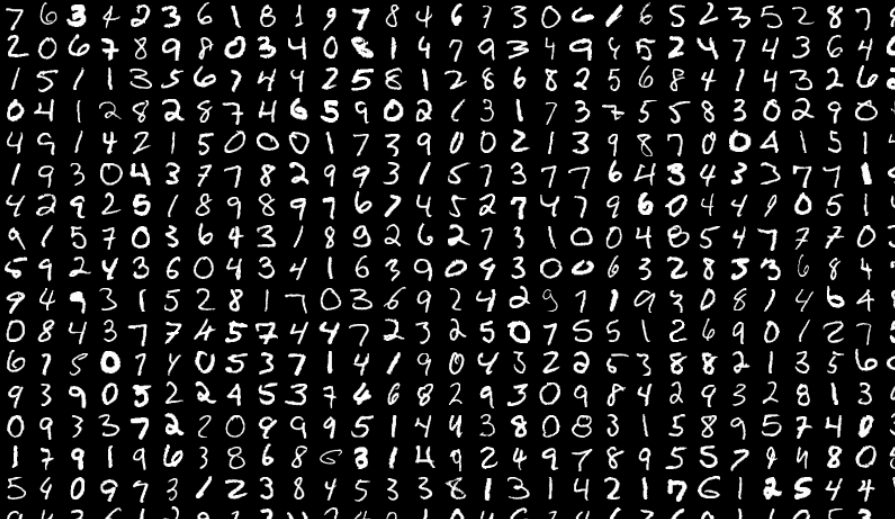 7 6 3 4 2 3 6 1 8 1 9 7 8 4 6 7 3 0 6 1 6 5 2 3 5 2 8 7
2 0 6 7 8 9 8 0 3 4 0 8 1 4 7 9 3 4 9 4 5 2 4 7 4 3 6 4
1 5 1 1 3 5 6 7 4 4 2 5 8 1 2 8 6 8 2 5 6 8 4 1 4 3 2 6
0 4 1 2 8 2 8 7 4 6 5 9 0 2 1 3 1 7 3 7 5 5 8 3 0 2 9 0
4 9 1 4 2 1 5 0 0 0 1 7 3 9 0 0 2 1 3 9 8 7 0 0 4 1 5 1
1 9 3 0 4 3 7 7 8 2 9 9 3 1 5 7 3 7 7 6 4 3 4 3 3 7 7 1
4 2 9 2 5 1 8 9 8 9 7 6 7 4 5 2 7 4 7 9 6 0 4 4 9 0 5 1
9 1 5 7 0 3 6 4 3 1 8 9 2 6 2 7 3 1 0 0 4 8 5 4 7 7 7 0
5 9 2 4 3 6 0 4 3 4 1 6 3 9 0 9 3 0 0 6 3 2 8 5 3 6 8 4
9 4 9 3 1 5 2 8 1 7 0 3 6 9 2 4 2 9 7 1 9 3 0 8 1 4 6 4
0 8 4 3 7 7 4 5 7 4 4 7 2 3 2 5 0 7 5 5 1 2 6 9 0 1 2 7
6 7 5 0 7 4 0 5 3 7 1 4 1 9 0 4 3 2 2 5 3 8 8 2 1 3 5 6
9 3 9 0 5 2 2 4 5 3 7 4 6 8 2 9 3 0 9 8 4 2 9 3 2 8 1 3
0 9 3 3 7 2 2 0 9 9 9 5 1 4 4 3 8 0 8 3 1 5 8 9 5 7 4 0
1 7 9 1 9 6 3 8 6 8 3 1 4 9 2 4 9 7 8 9 5 5 7 9 4 8 0
5 4 0 9 7 3 1 2 3 8 4 5 3 3 8 1 3 1 4 2 1 7 6 1 2 5 4 4